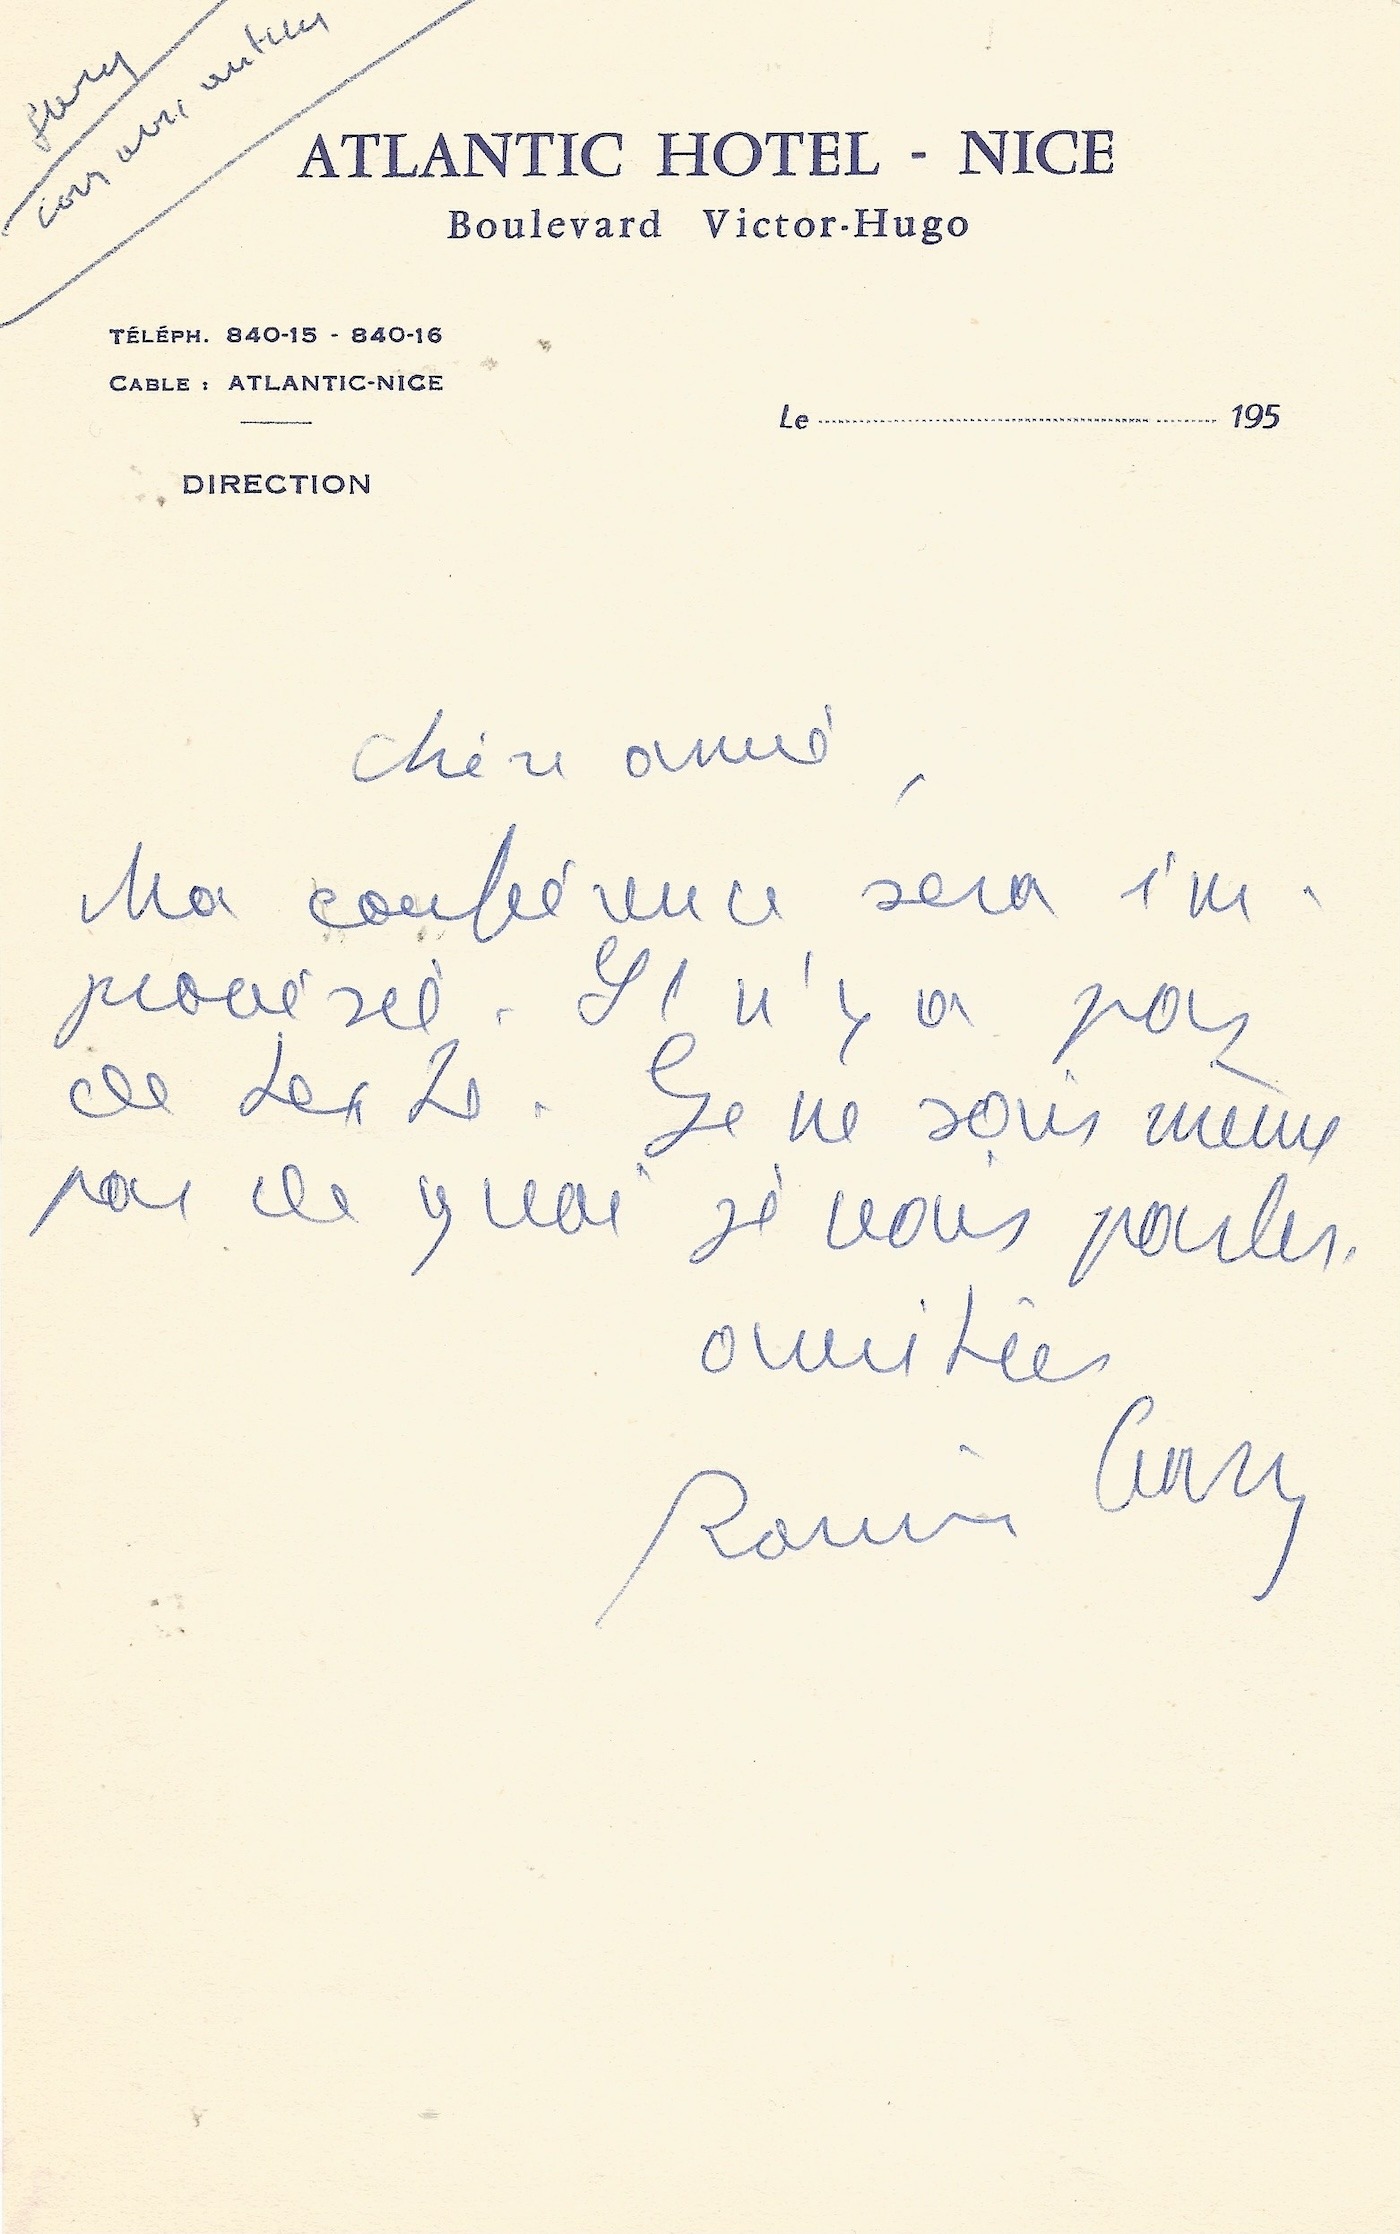 Gary
corr avec
ATLANTIC HOTEL - NICE
Boulevard Victor-Hugo
TÉLÉPH. 840-15 - 840-16
CABLE : ATLANTIC-NICE
Le 195
DIRECTION
Chère amie,
Ma conférence sera im-
provisée. Il n'y a pas
de texte. Je ne sais même
pas de quoi je vais parler.
amitiés
Romain Gary